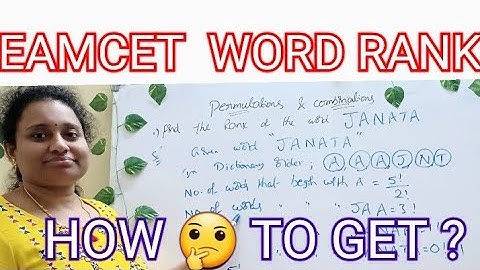 EAMCET WORD RANK
Permutations & combinations
1) Find the Rank of the word JANATA
Given word "JANATA"
in Dictionary order; A A A J N T
No. of word that begin with A = 5!/2!
No. of words " " JAA = 3!
= 0!
HOW 🤔 TO GET ?